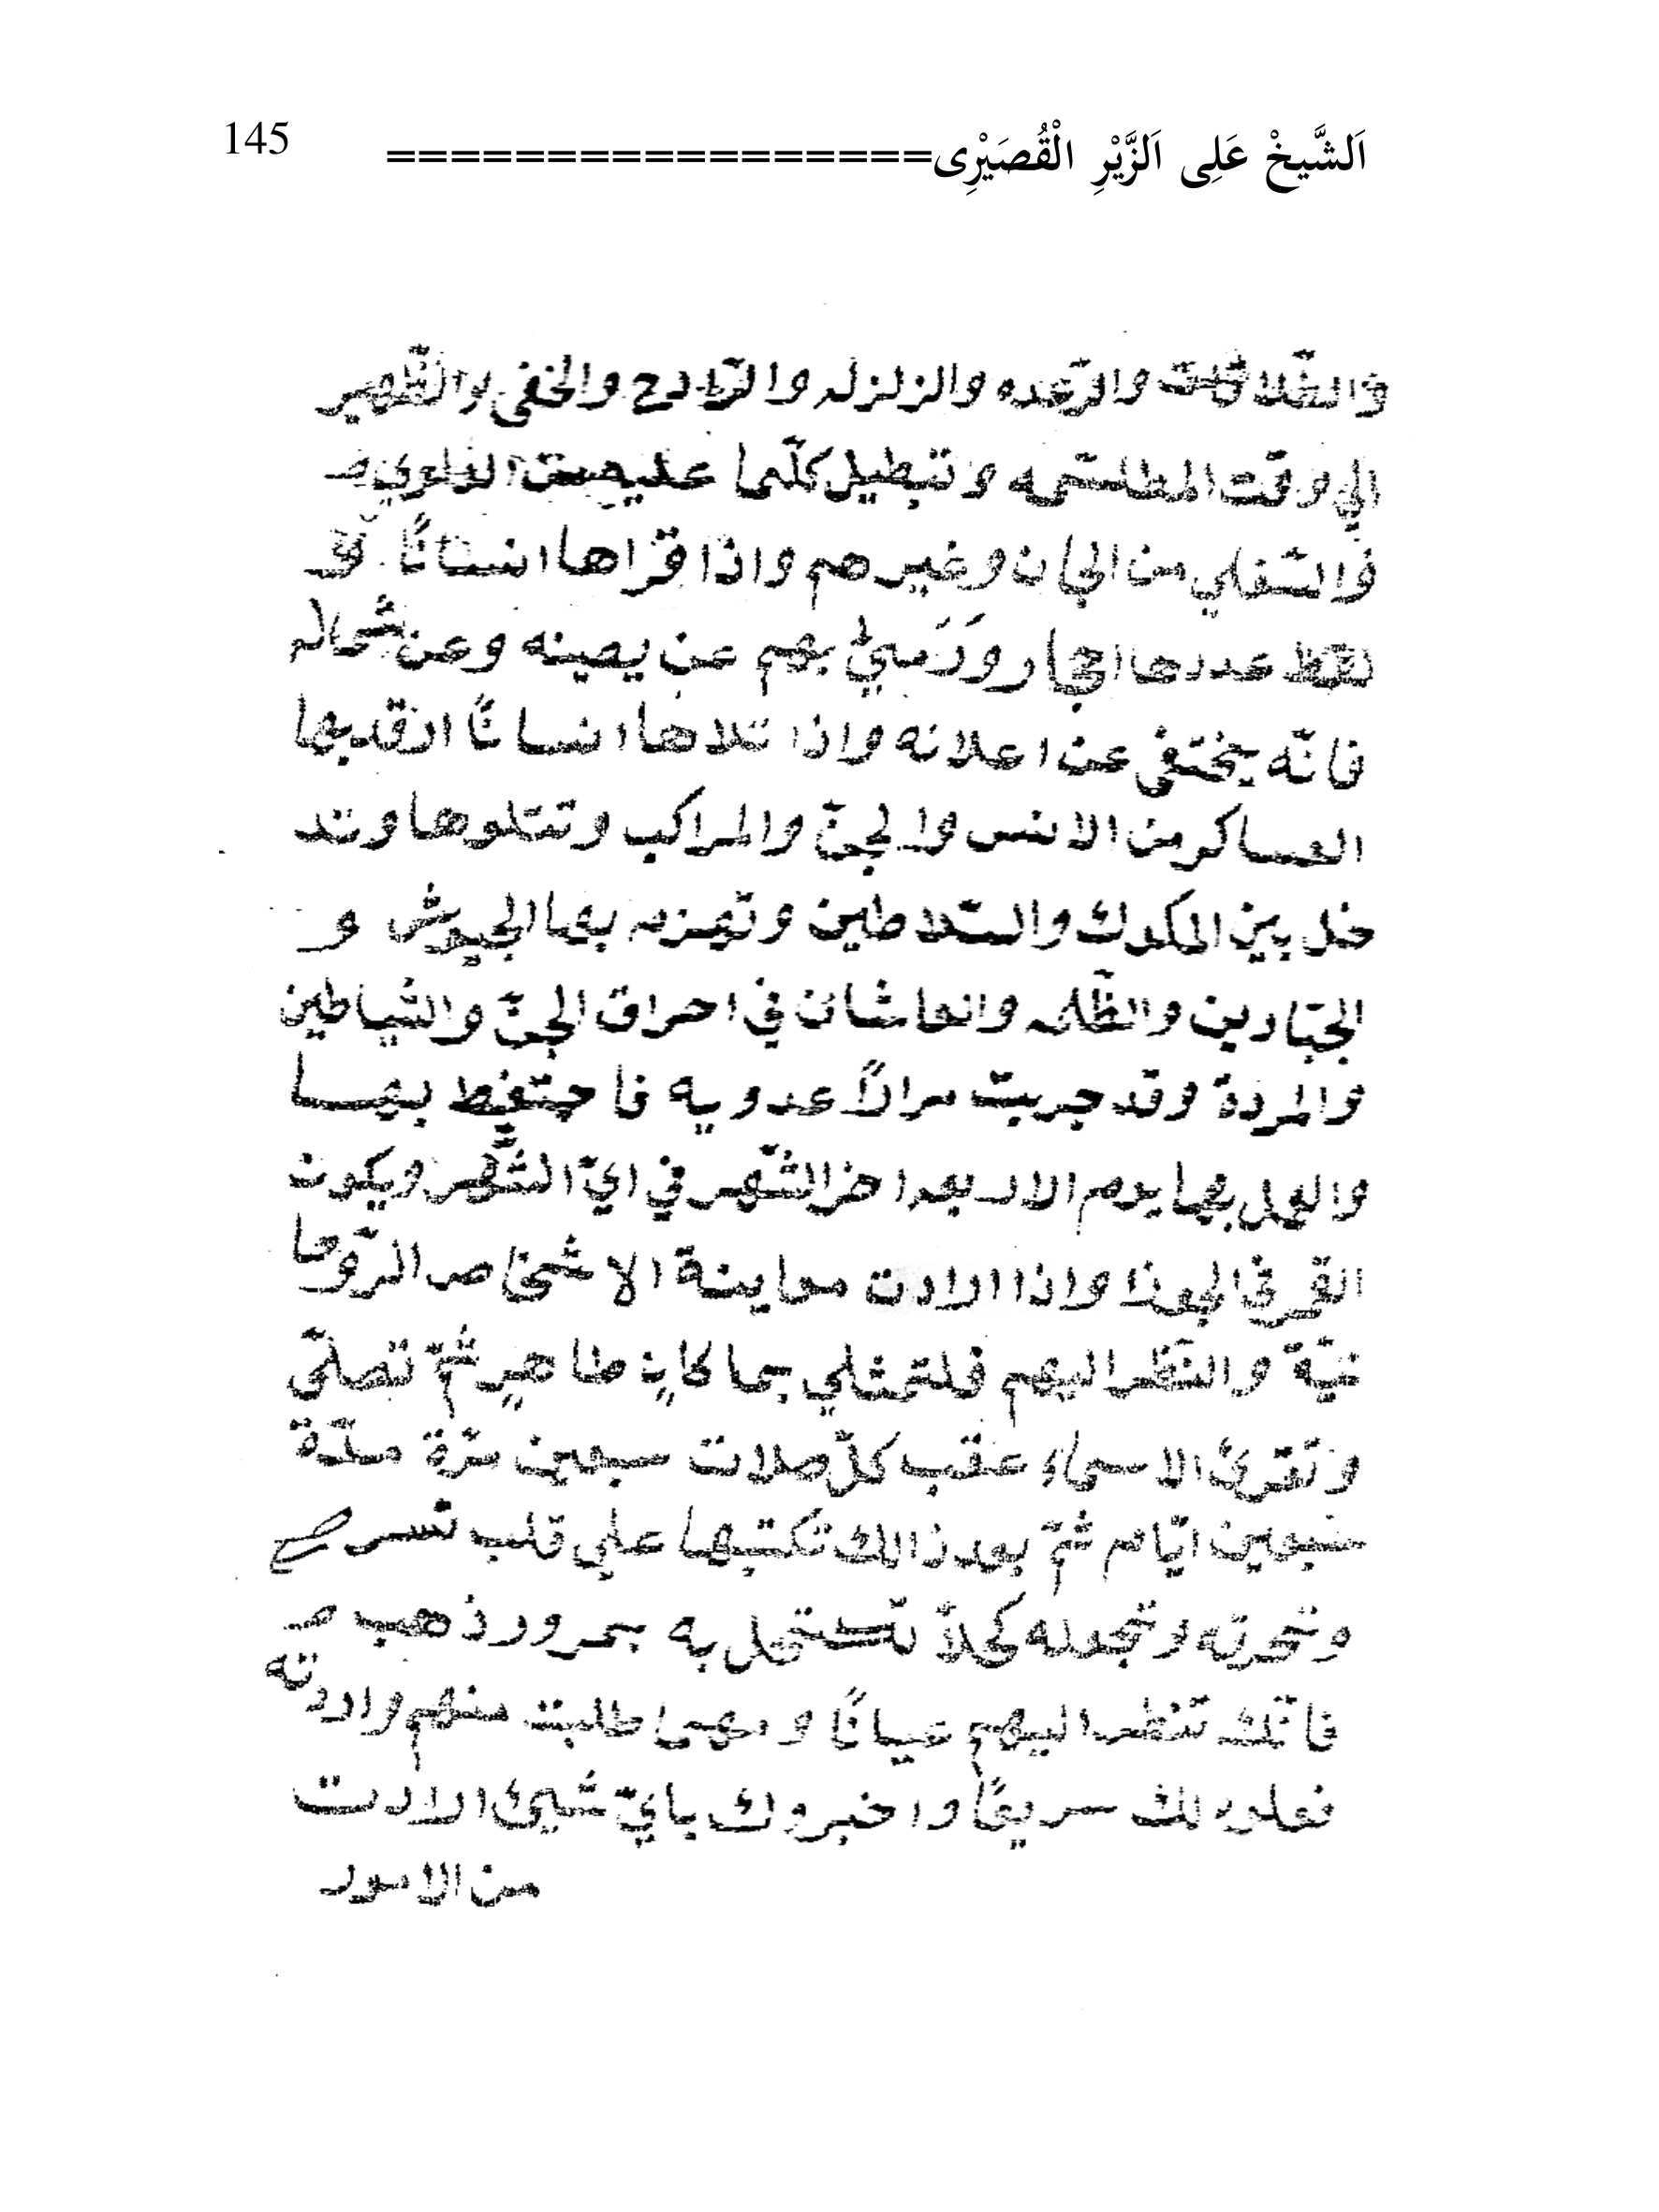 اَلشَّيخْ عَلِى اَلزَّيْرِ الْقُصَيْرِى================= 145
والرّعده والزلزله والخفى والظّهير
الي وقت المطلسمه وتبطيل كلّما
والسّفلي من الجان وغيرهم واذا قراها انسانًا
عددها احجار ورَمَيْ بهم عن يمينه وعن شماله
فانّه يختفى عن اعلانه واذا تلاها انسانًا
العساكر من الانس والجنّ والمراكب وتتلوها وتد
خل بين الملوك والسّلاطين وتهزم بها الجيوش و
الجبّارين والظّلمه والعاشان في احراق الجنّ والشياطين
والمردة وقد جربت مرارًا عدويه فاحتفظ بها
والعمل بها يوم الاربعه اخر الشّهر في ايّ الشّهر ويكون
القمر في الجوزا واذا ارادت معاينة الاشخاص الرّوحا
نيّة والنّظر اليهم بمكانٍ طاهرٍ ثمّ تصلّي
وتقرئ الاسماء عقب كلّ صلات سبعين مرّة مدّة
سبعين ايّام ثمّ بعد ذالك تكتبها علي قلب نسر
وتحرقه وتجعله كحلاً به بمرود ذهب
فانّك تنظر اليهم عيانًا ومهما طلبت منهم واردته
فعلوه لك سريعًا واخبروك بايّ شيئ ارادت
من الامور